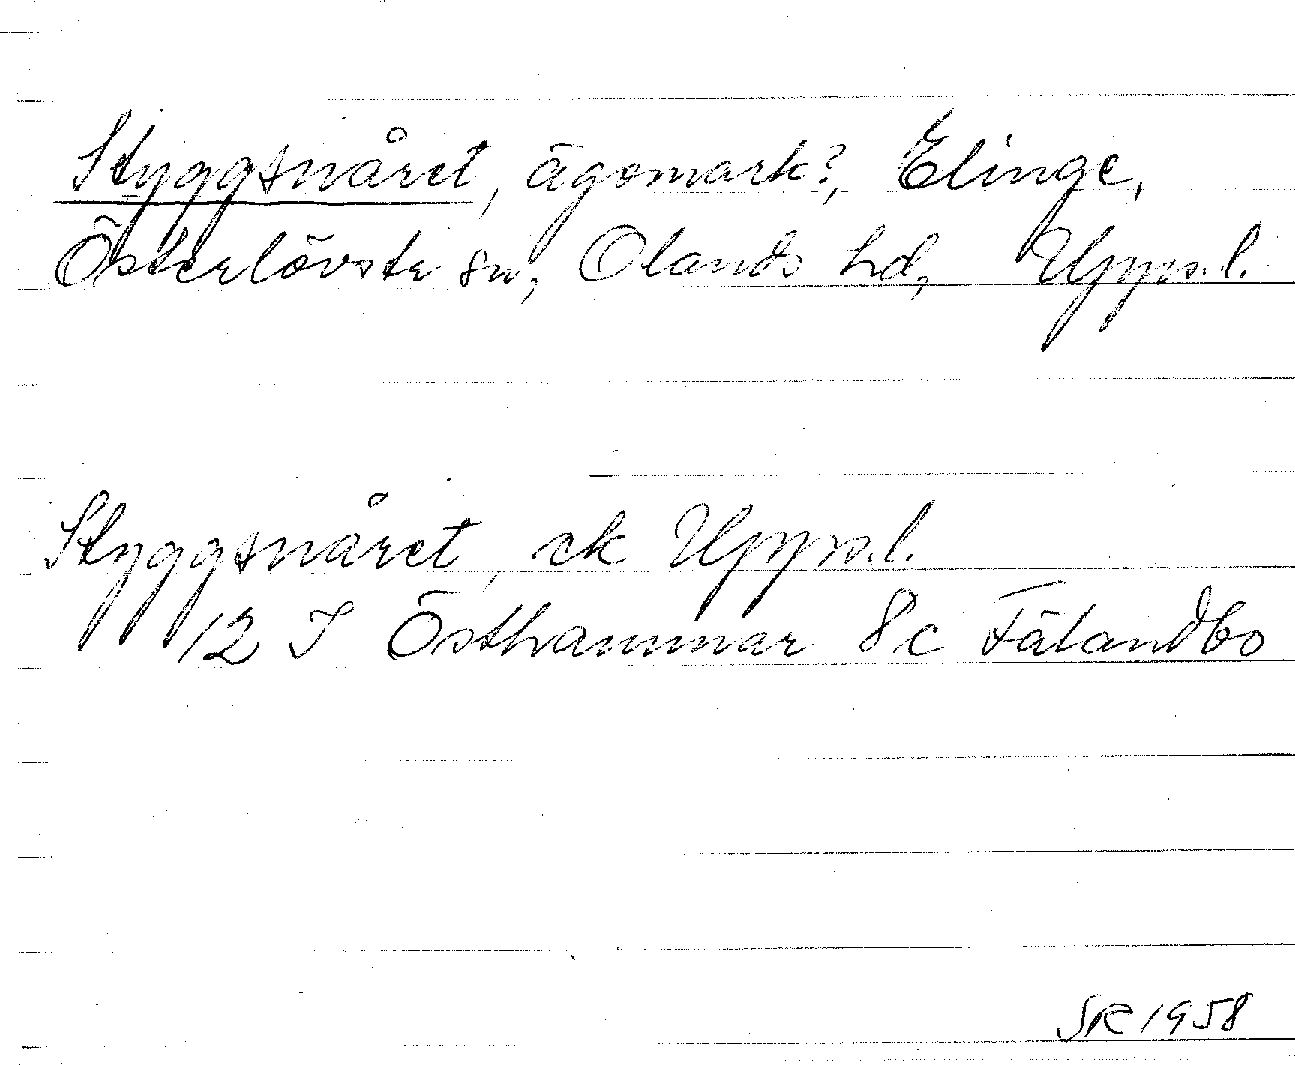 Styggsnåret, ägomark?, Elinge,
Österlövsta sn, Olands hd, Upps.l.
Styggsnåret, ek Upps.l.
12 I Östhammar 8c Fälandbo
SR 1958